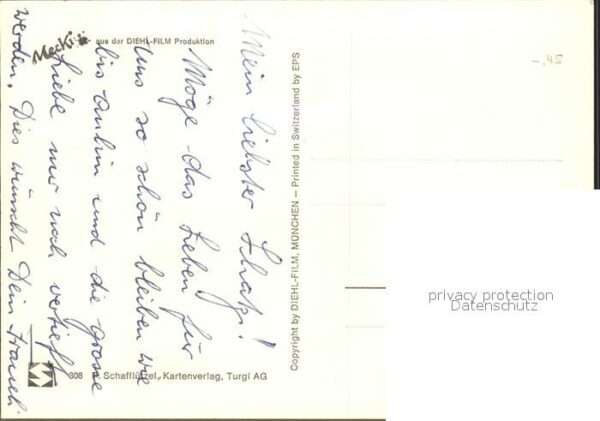 Mecki aus der DIEHL-FILM Produktion
Mein liebster Schatz!
Möge das Leben für
uns so schön bleiben wie
bis anhin und die grosse
Liebe nur noch vertieft
werden. Dies wünscht Dein
Copyright by DIEHL-FILM, MÜNCHEN – Printed in Switzerland by EPS
308 Schafflützel, Kartenverlag, Turgi AG
-.45
privacy protection
Datenschutz